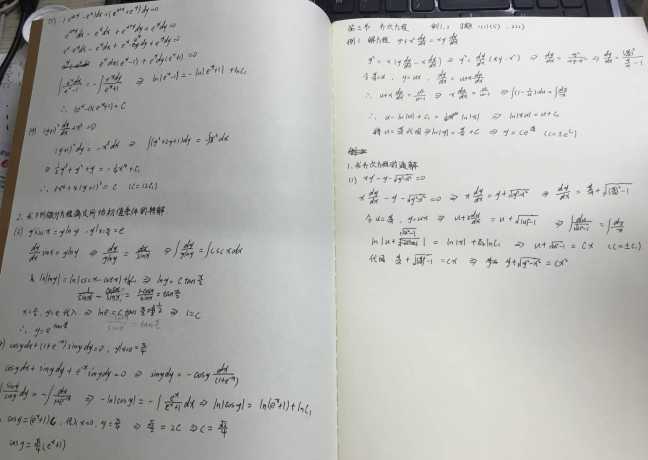 (7) (e^{x+y}-e^x)dx+(e^{x+y}+e^y)dy=0
e^{x+y}dx-e^xdx+e^{x+y}dy+e^ydy=0
e^x·e^ydx-e^xdx+e^xe^ydy+e^ydy=0
e^xdx(e^y-1)+e^ydy(e^x+1)=0
(9) (y+1)²dy/dx+x³=0
(y+1)²dy=-x³dx ⇒ ∫(y²+2y+1)dy=∫-x³dx
⇒ ⅓y³+y²+y=-¼x⁴+C₁
∴ 3x⁴+4(y+1)³=C (C=12C₁)
2. 求下列微分方程满足所给初值条件的特解
(2) y'sinx=ylny y|x=π/2=e
dy/dx sinx=ylny ⇒ dy/ylny=dx/sinx ⇒ ∫dy/ylny=∫cscxdx
ln|lny|=ln|cscx-cotx|+lnC₁ ⇒ lny=Ctan x/2
∴ y=e^{tan x/2}
cosydx+(1+e^{-x})sinydy=0, y|x=0=π/4
cosydx+sinydy+e^{-x}sinydy=0 ⇒ sinydy=-cosy dx/(1+e^{-x})
∫siny/cosy dy=-∫dx/(1+e^{-x}) ⇒ -ln|cosy|=-∫e^x/(e^x+1)dx ⇒ ln|cosy|=ln(e^x+1)+lnC₁
cosy=(e^x+1)C, 代入x=0, y=π/4 ⇒ √2/2=2C ⇒ C=√2/4
cosy=√2/4(e^x+1)
第三节 齐次方程
例1 解方程 y²+x²dy/dx=xy dy/dx
y²=x(y dy/dx-x dy/dx) ⇒ y²=dy/dx(xy-x²) ⇒ dy/dx=y²/(xy-x²) ⇒ dy/dx=(y/x)²/(y/x-1)
令u=y/x, y=ux, dy/dx=u+x du/dx
∴ u+x du/dx=u²/(u-1) ⇒ x du/dx=u/(u-1) ⇒ ∫(1-1/u)du=∫dx/x
∴ u-ln|u|+C₁=ln|x| ⇒ ln|xu|=u+C₁
将u=y/x代回 ⇒ ln|y|=y/x+C₁ ⇒ y=Ce^{y/x} (C=±e^{C₁})
1. 求齐次方程的通解
(1) xy'-y-√(y²-x²)=0
x dy/dx-y-√(y²-x²)=0 ⇒ x dy/dx=y+√(y²-x²) ⇒ dy/dx=y/x+√((y/x)²-1)
令u=y/x, y=ux ⇒ u+x du/dx=u+√(u²-1) ⇒ ∫du/√(u²-1)=∫dx/x
ln|u+√(u²-1)|=ln|x|+lnC₁ ⇒ u+√(u²-1)=Cx (C=±C₁)
代回 y/x+√((y/x)²-1)=Cx ⇒ y+√(y²-x²)=Cx²